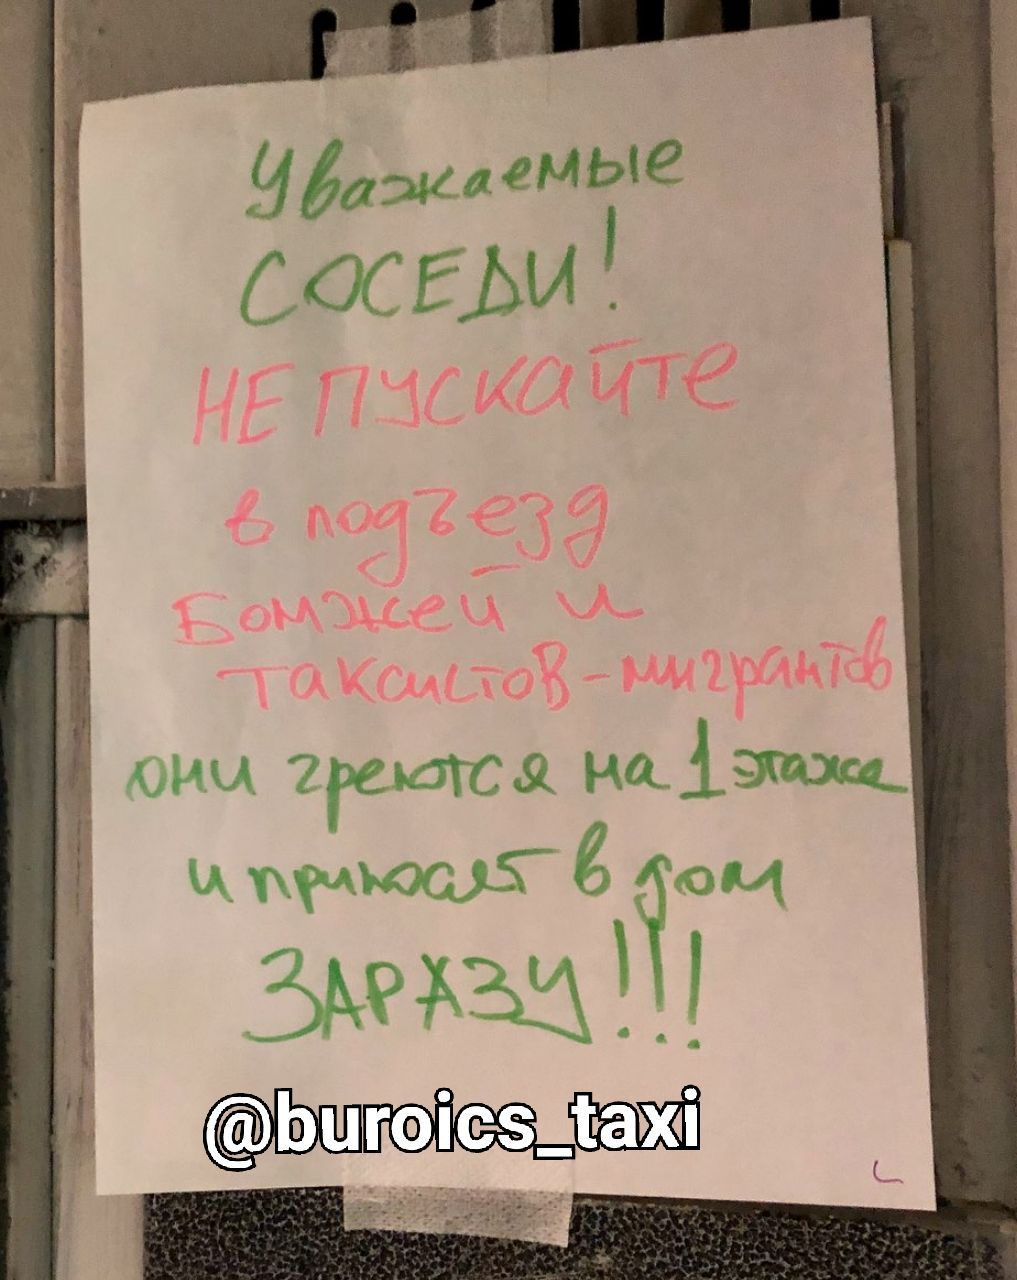 Уважаемые
СОСЕДИ!
НЕ ПУСКАйТе
в подъезд
Бомжей и
таксистов-мигрантов
они греются на 1 этаже
и приносят в дом
ЗАРАЗУ!!!
@buroics_taxi